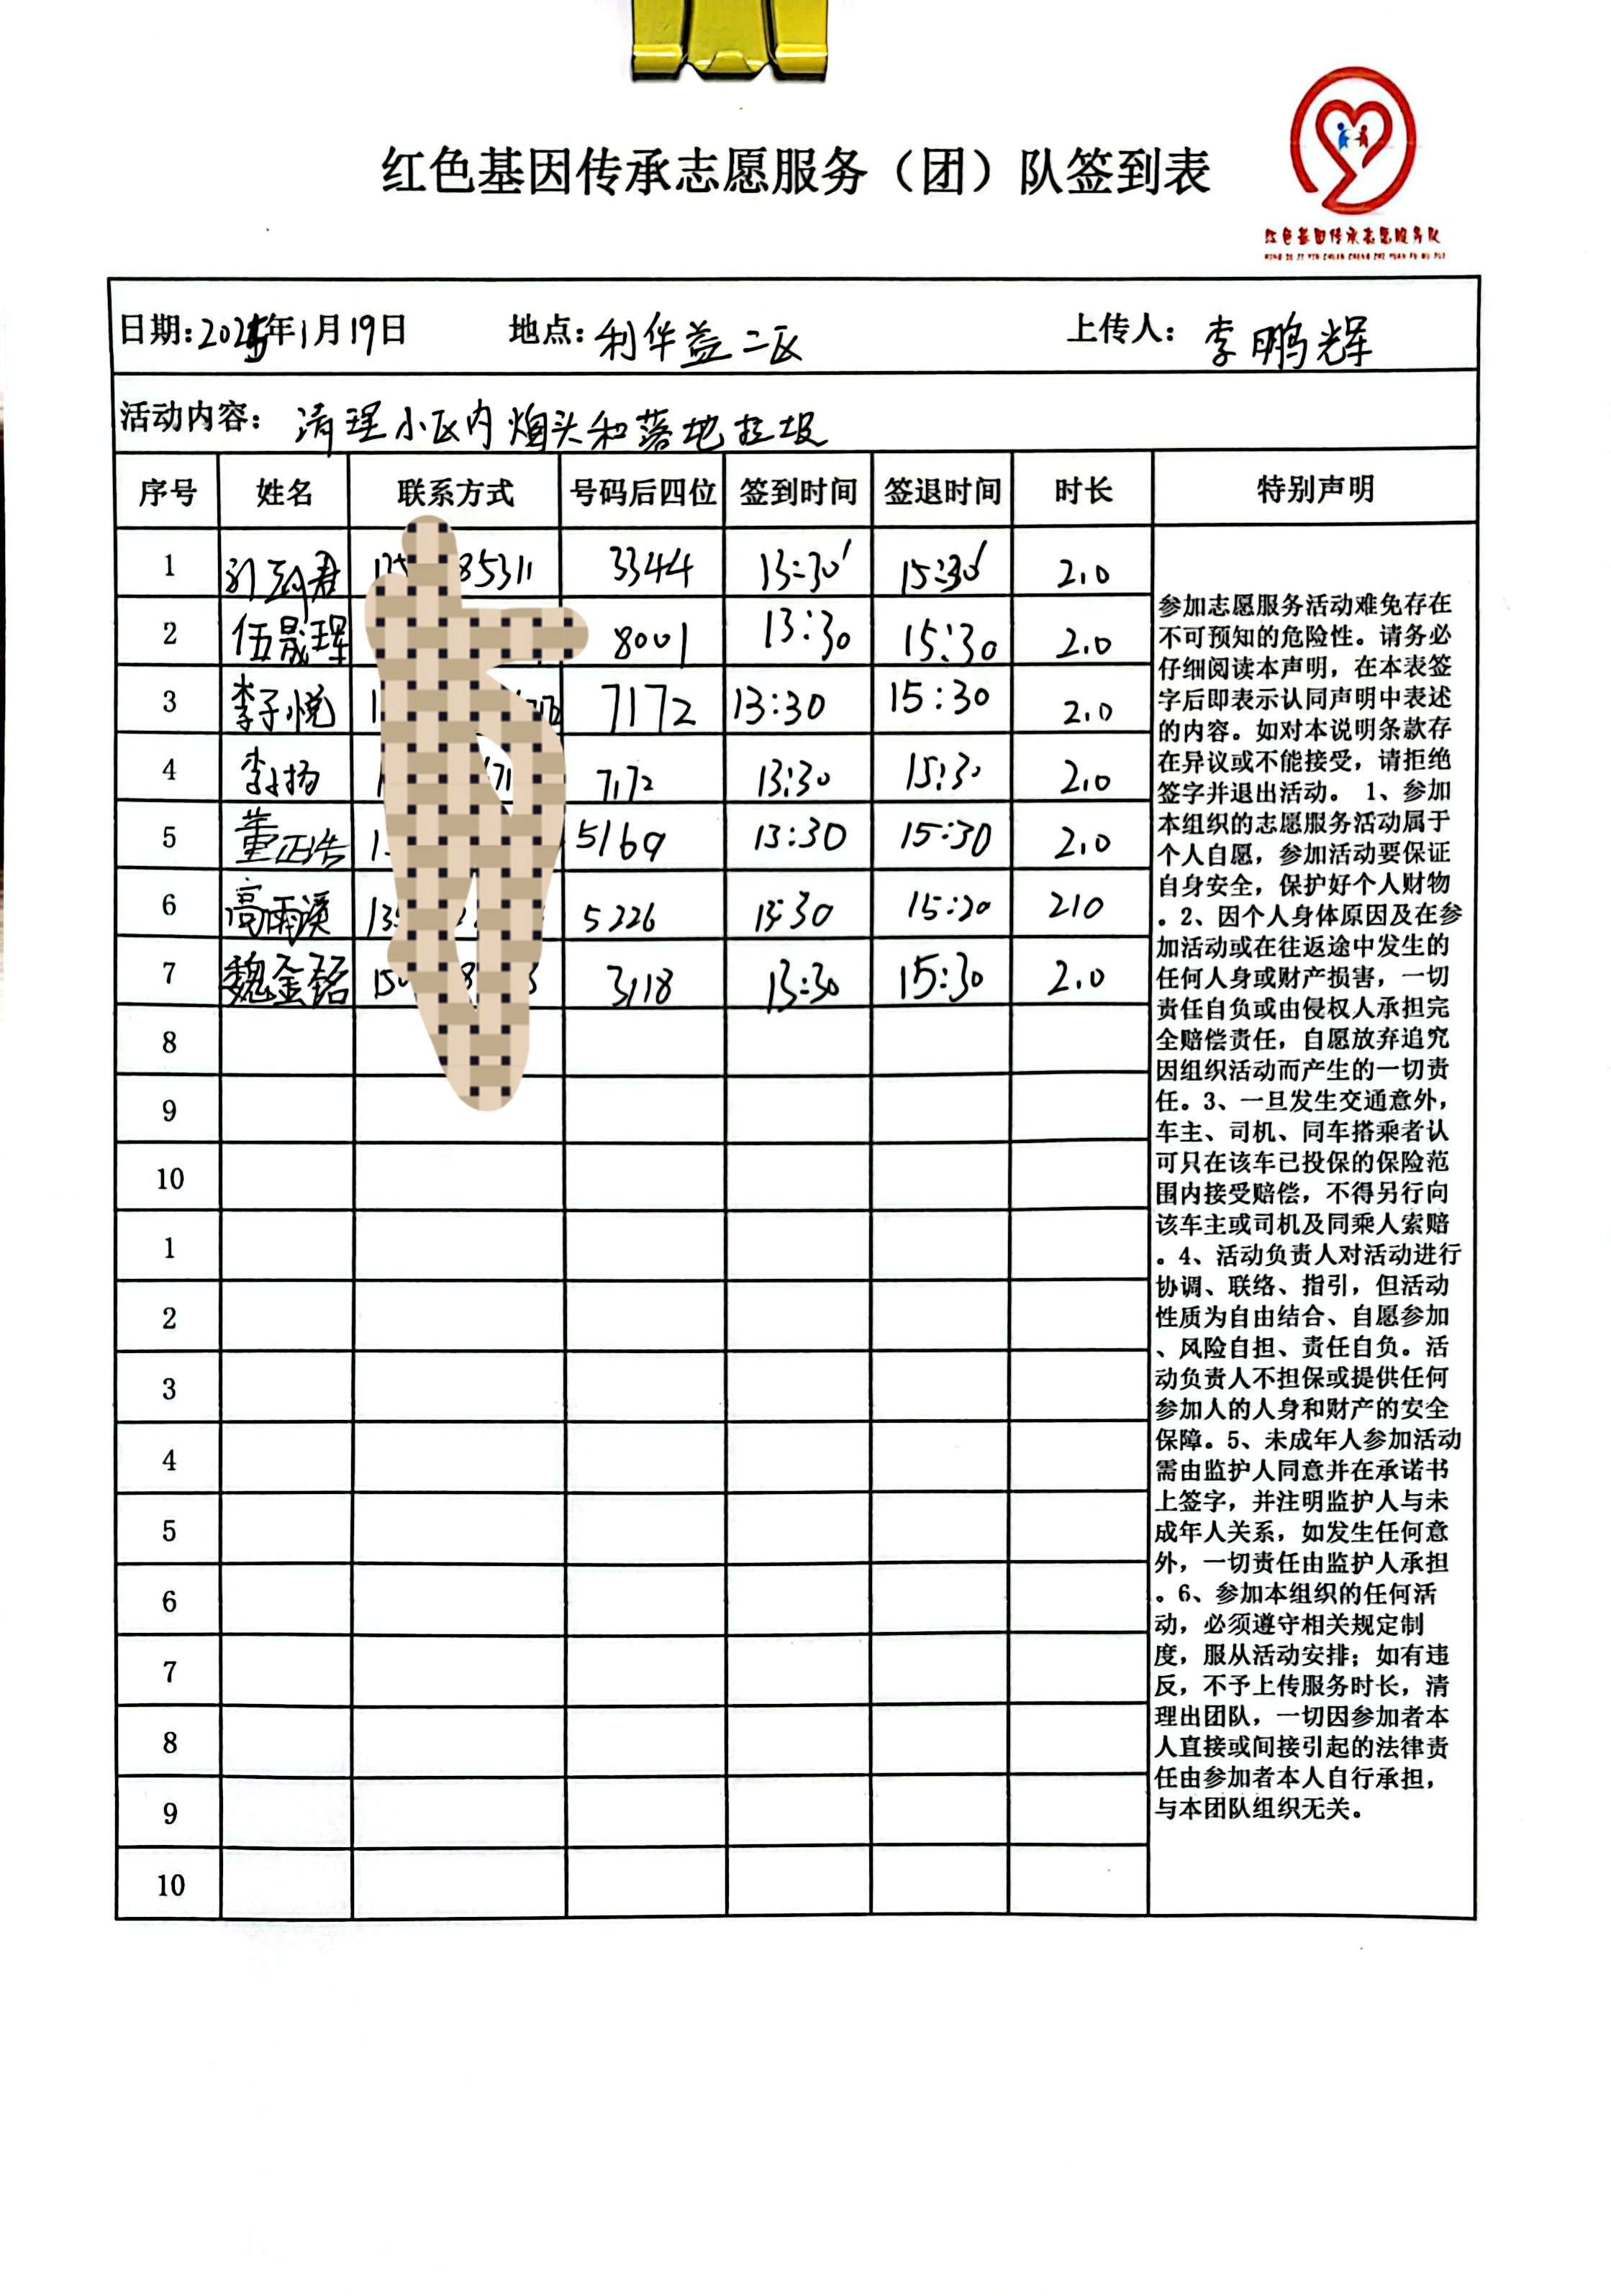 红色基因传承志愿服务（团）队签到表
红色基因传承志愿服务队
HONG SE JI YIN CHUAN CHENG ZHI YUAN FU WU DUI
日期:2025年1月19日 地点:利华益二区 上传人:李鹏辉
活动内容:清理小区内烟头和落地垃圾
序号 姓名 联系方式 号码后四位 签到时间 签退时间 时长 特别声明
1 85311 3344 13:30 15:30 2.0
2 伍晟珲 8001 13:30 15:30 2.0
3 李子悦 7172 13:30 15:30 2.0
4 李扬 7172 13:30 15:30 2.0
5 董正浩 5169 13:30 15:30 2.0
6 高雨溪 5226 13:30 15:30 210
7 魏金铭 3118 13:30 15:30 2.0
8
9
10
1
2
3
4
5
6
7
8
9
10
参加志愿服务活动难免存在
不可预知的危险性。请务必
仔细阅读本声明，在本表签
字后即表示认同声明中表述
的内容。如对本说明条款存
在异议或不能接受，请拒绝
签字并退出活动。1、参加
本组织的志愿服务活动属于
个人自愿，参加活动要保证
自身安全，保护好个人财物
。2、因个人身体原因及在参
加活动或在往返途中发生的
任何人身或财产损害，一切
责任自负或由侵权人承担完
全赔偿责任，自愿放弃追究
因组织活动而产生的一切责
任。3、一旦发生交通意外，
车主、司机、同车搭乘者认
可只在该车已投保的保险范
围内接受赔偿，不得另行向
该车主或司机及同乘人索赔
。4、活动负责人对活动进行
协调、联络、指引，但活动
性质为自由结合、自愿参加
、风险自担、责任自负。活
动负责人不担保或提供任何
参加人的人身和财产的安全
保障。5、未成年人参加活动
需由监护人同意并在承诺书
上签字，并注明监护人与未
成年人关系，如发生任何意
外，一切责任由监护人承担
。6、参加本组织的任何活
动，必须遵守相关规定制
度，服从活动安排；如有违
反，不予上传服务时长，清
理出团队，一切因参加者本
人直接或间接引起的法律责
任由参加者本人自行承担，
与本团队组织无关。